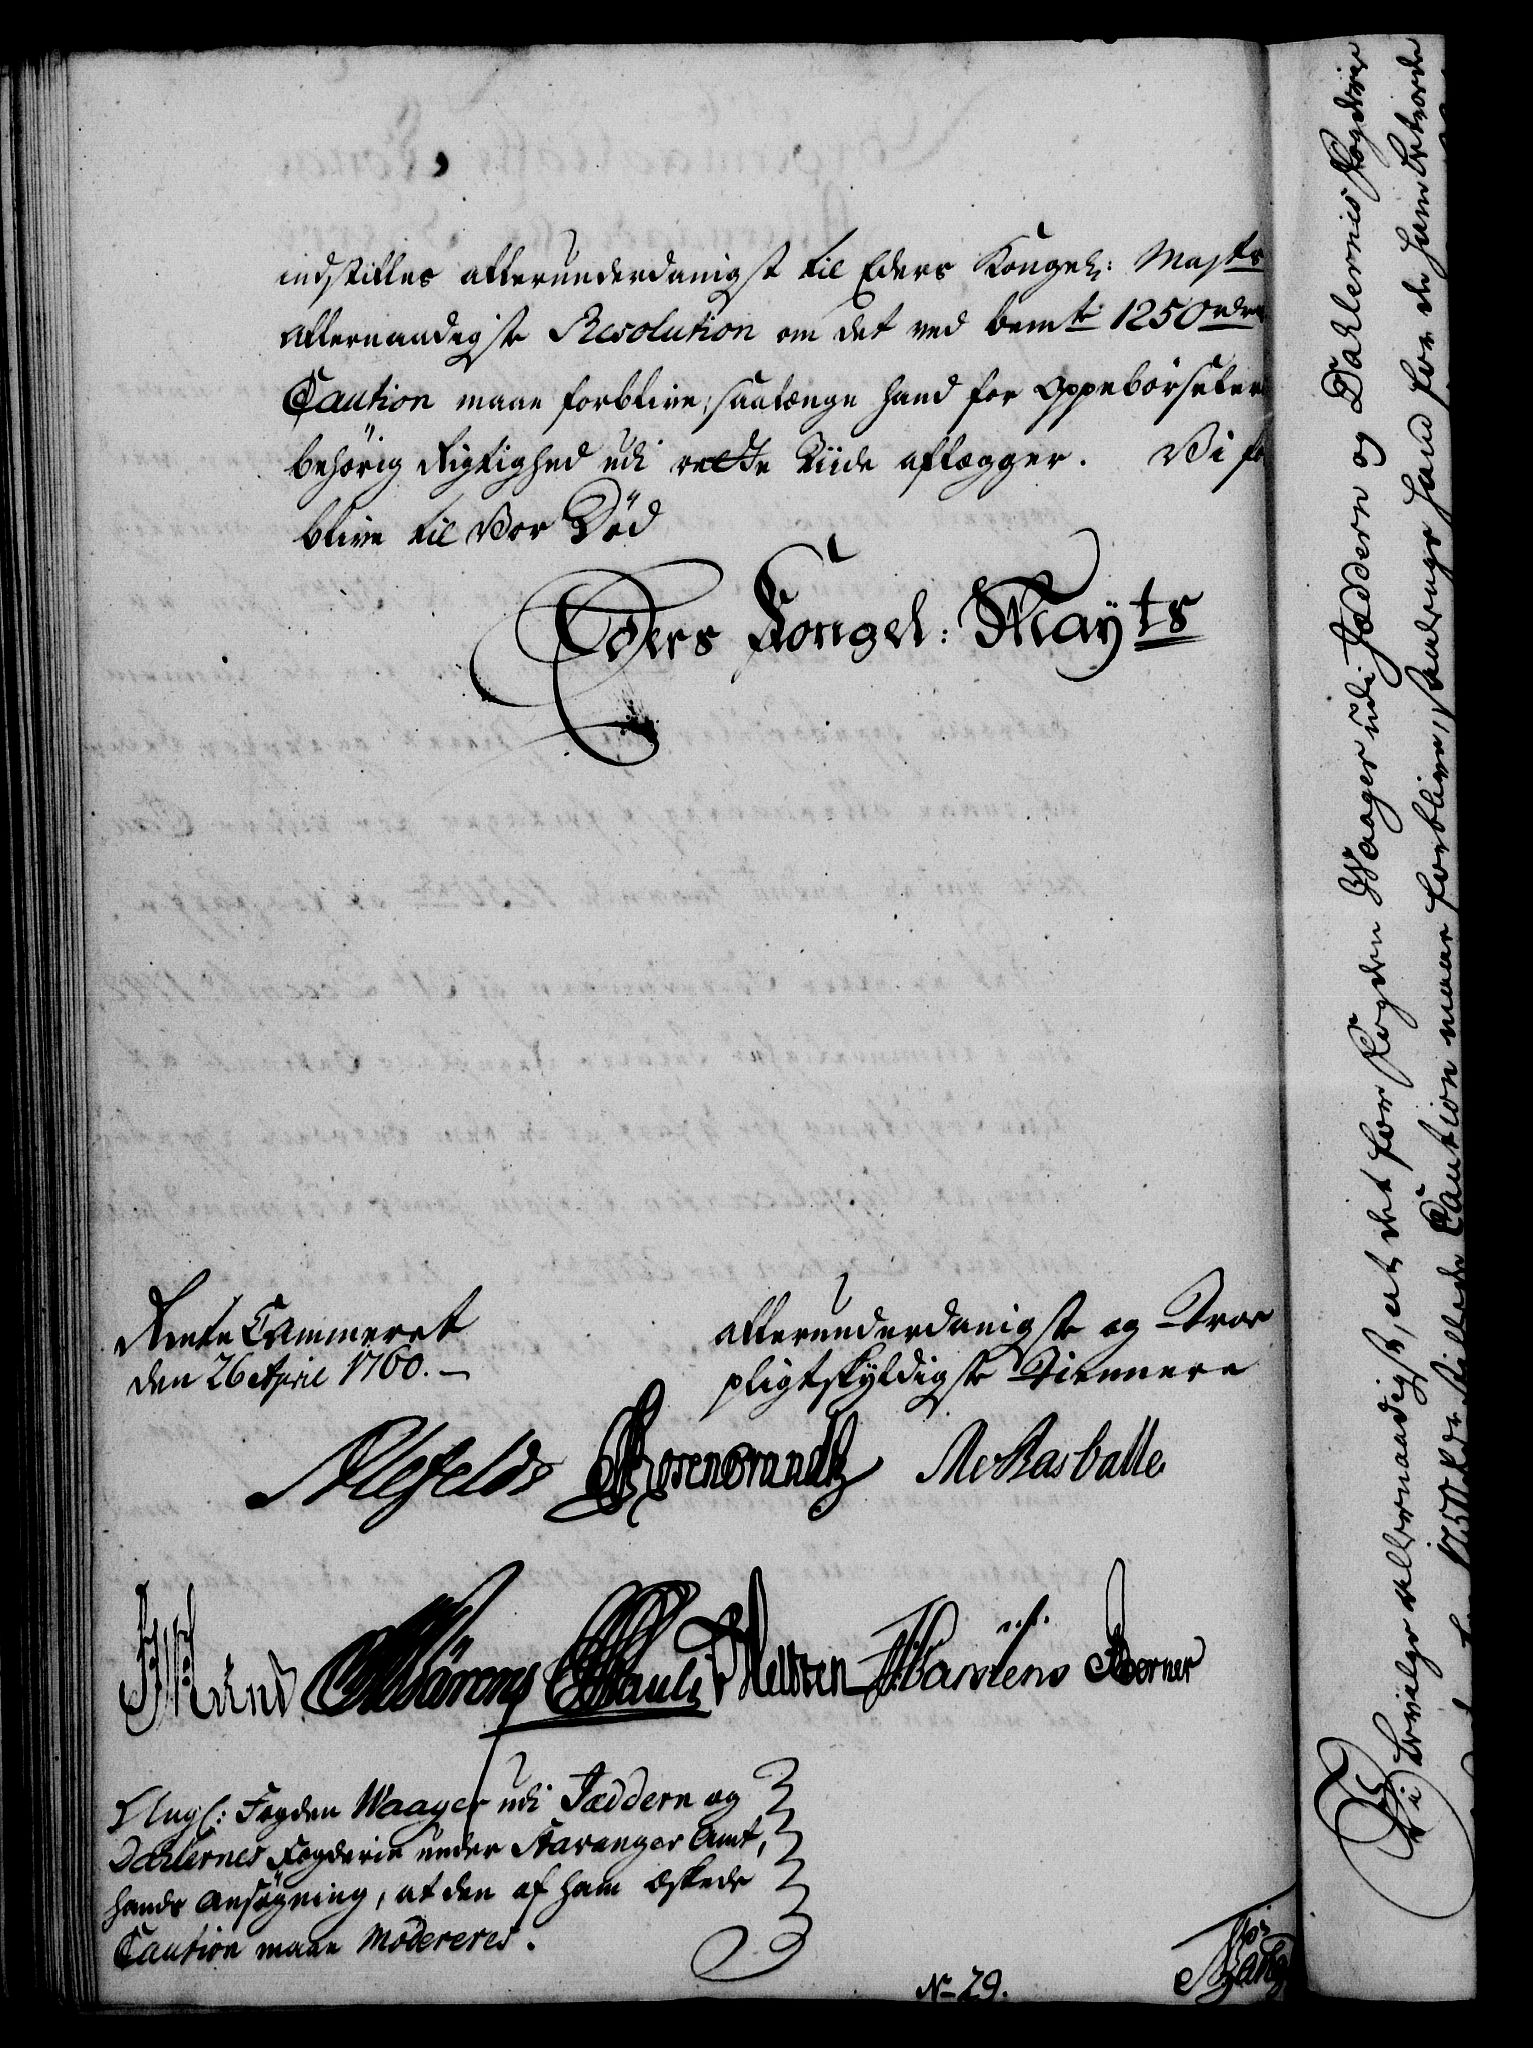 indstilles allerunderdanigst til Eders Kongel: Maysts
Allernaadigste Resolution om det ved bemte 1250 rdrs
Caution maae forblive, saalænge hand for Oppebörseler
behörig Rigtighed udi rette Tiide aflægger. Vi for
blive til Vor Död
Eders Kongel: Mayts
Rente Cammeret
den 26 April 1760.
allerunderdanigste og Troe
pligtskyldigste Tiennere
Alefeldt Rosencrandtz
Pauli Martens Börner
Ang: Fogden Waager udi Jæddern og
Dahlernes Fogderie under Stavanger Amt,
hands Ansøgning, at den af ham æskede
Caution maae Modereres.
No 29.
Vi bevilge allernaadigst, at det for Fogden Waager udi Jæddern og Dahlernes Fogderie
Caution maae forblive, saalænge hand for de ham betroede